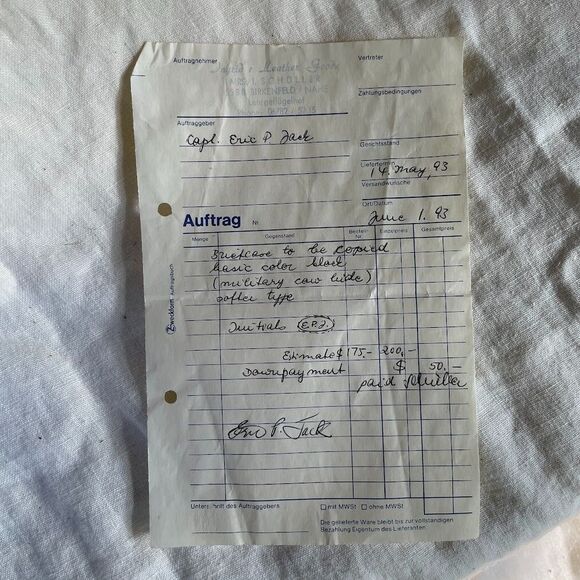 Auftragnehmer
Vertreter
Ingrid's Leather Goods
MRS. I. SCHÜLLER
BIRKENFELD / NAHE
Lehrgeflügelhof
Zahlungsbedingungen
Auftraggeber
Capt. Eric P. Jack
Gerichtsstand
Liefertermin
14. May, 93
Versandwünsche
Ort/Datum
June 1. 93
Auftrag Nr.
Menge Gegenstand Bestell-Nr. Einzelpreis Gesamtpreis
Suitcase to be copied
basic color black
(military cow hide)
softer type
Initials E.P.J.
Estimate $ 175,- 200,-
Downpayment $ 50.-
paid Schüller
Eric P. Jack
Zweckform Auftragsbuch
Unterschrift des Auftraggebers
mit MWSt ohne MWSt
Die gelieferte Ware bleibt bis zur vollständigen
Bezahlung Eigentum des Lieferanten.